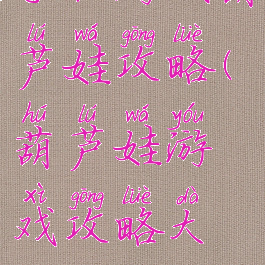 lú wá gōng lüè
芦娃攻略(
hú lú wá yóu
葫芦娃游
xì gōng lüè dà
戏攻略大